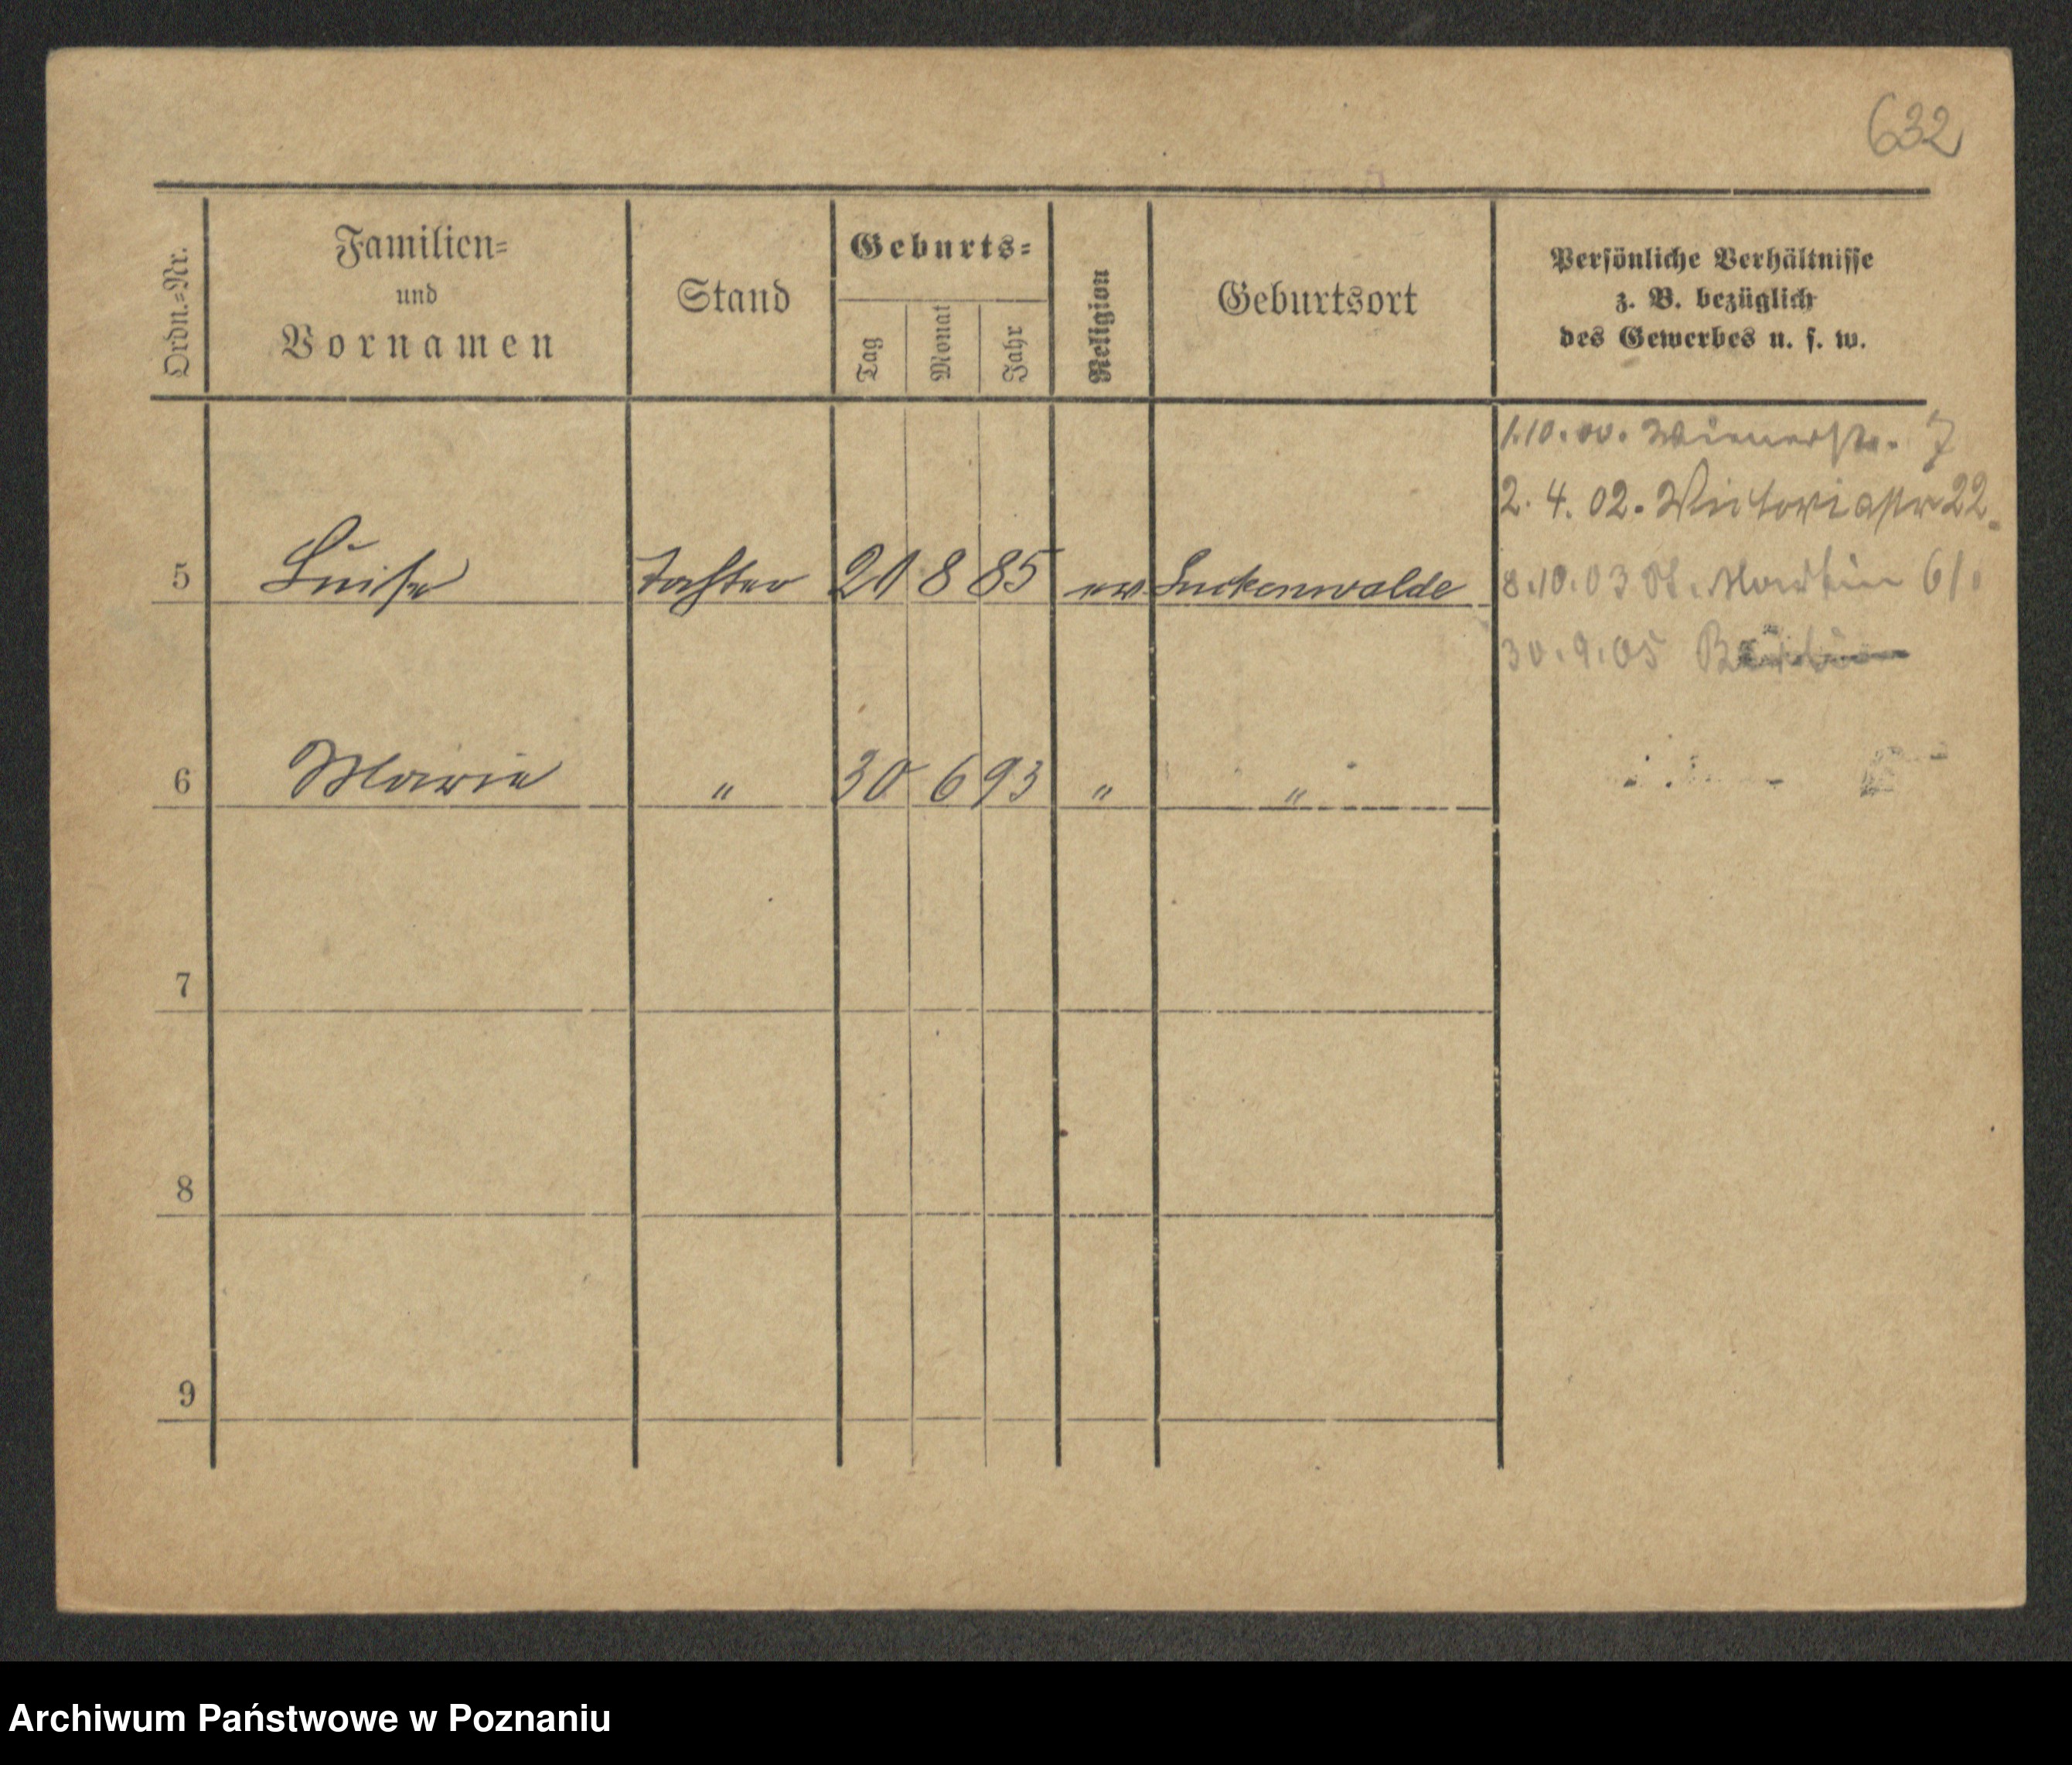 632
Ordn.=Nr.
Familien=
und
Vornamen
Stand
Geburts=
Tag
Monat
Jahr
Religion
Geburtsort
Persönliche Verhältnisse
z. B. bezüglich
des Gewerbes u. s. w.
1.10.00. Wienerstr. 7
2. 4. 02. Victoriastr 22.
5 Luise Tochter 21 8 85 ev Luckenwalde
8.10.03 St. Martin 61.
30.9.05
6 Marie " 30 6 93 " "
7
8
9
Archiwum Państwowe w Poznaniu